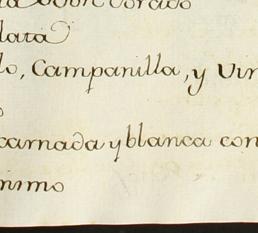 Dorado
lata
lo, Campanilla, y Vin
carnada y blanca con
nimo